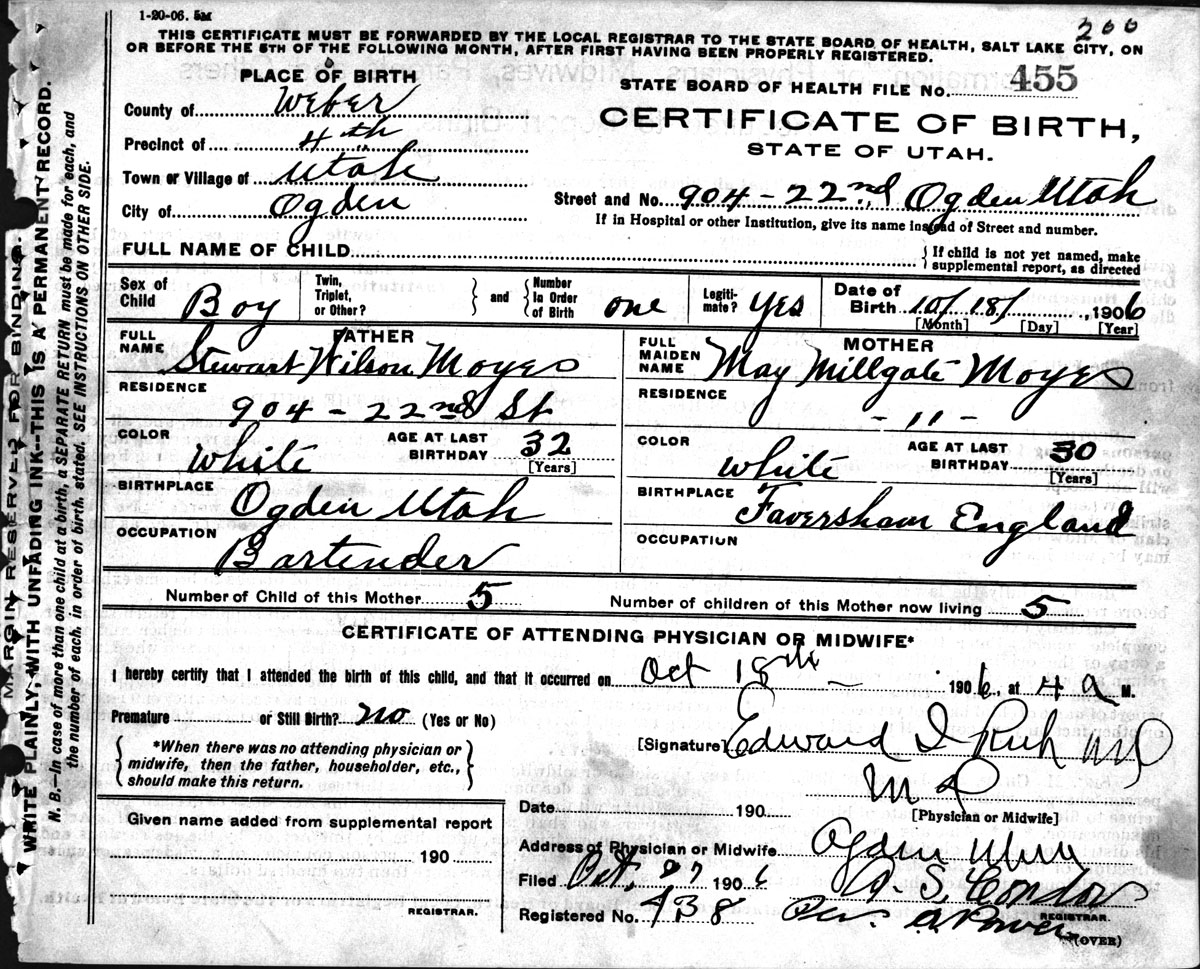 1-20-06. 5M
200
THIS CERTIFICATE MUST BE FORWARDED BY THE LOCAL REGISTRAR TO THE STATE BOARD OF HEALTH, SALT LAKE CITY, ON
OR BEFORE THE 5TH OF THE FOLLOWING MONTH, AFTER FIRST HAVING BEEN PROPERLY REGISTERED.
PLACE OF BIRTH
STATE BOARD OF HEALTH FILE No. 455
County of Weber
CERTIFICATE OF BIRTH,
STATE OF UTAH.
Precinct of 4th
Town or Village of Utah
City of Ogden
Street and No. 904 - 22nd Ogden Utah
If in Hospital or other Institution, give its name instead of Street and number.
FULL NAME OF CHILD
If child is not yet named, make supplemental report, as directed
Sex of Child Boy Twin, Triplet, or Other? and Number in Order of Birth one Legitimate? Yes Date of Birth 10/ 18/ 1906
[Month] [Day] [Year]
FATHER
FULL NAME Stewart Wilson Moyes
RESIDENCE
904 - 22nd St
COLOR White AGE AT LAST BIRTHDAY 32 [Years]
BIRTHPLACE
Ogden Utah
OCCUPATION
Bartender
MOTHER
FULL MAIDEN NAME May Millgate Moyes
RESIDENCE
- 11 -
COLOR White AGE AT LAST BIRTHDAY 30 [Years]
BIRTHPLACE Faversham England
OCCUPATION
Number of Child of this Mother 5 Number of children of this Mother now living 5
CERTIFICATE OF ATTENDING PHYSICIAN OR MIDWIFE*
I hereby certify that I attended the birth of this child, and that it occurred on Oct 18th 1906, at 4 a M.
Premature or Still Birth? No (Yes or No)
*When there was no attending physician or
midwife, then the father, householder, etc.,
should make this return.
[Signature] Edward I Rich MD
MD
[Physician or Midwife]
Date 190
Address of Physician or Midwife Ogden Utah
Filed Oct, 1906
Registered No. 438
REGISTRAR.
(OVER)
Given name added from supplemental report
190
REGISTRAR.
MARGIN RESERVED FOR BINDING.
WRITE PLAINLY, WITH UNFADING INK--THIS IS A PERMANENT RECORD.
N. B.—In case of more than one child at a birth, a SEPARATE RETURN must be made for each, and
the number of each, in order of birth, stated. SEE INSTRUCTIONS ON OTHER SIDE.